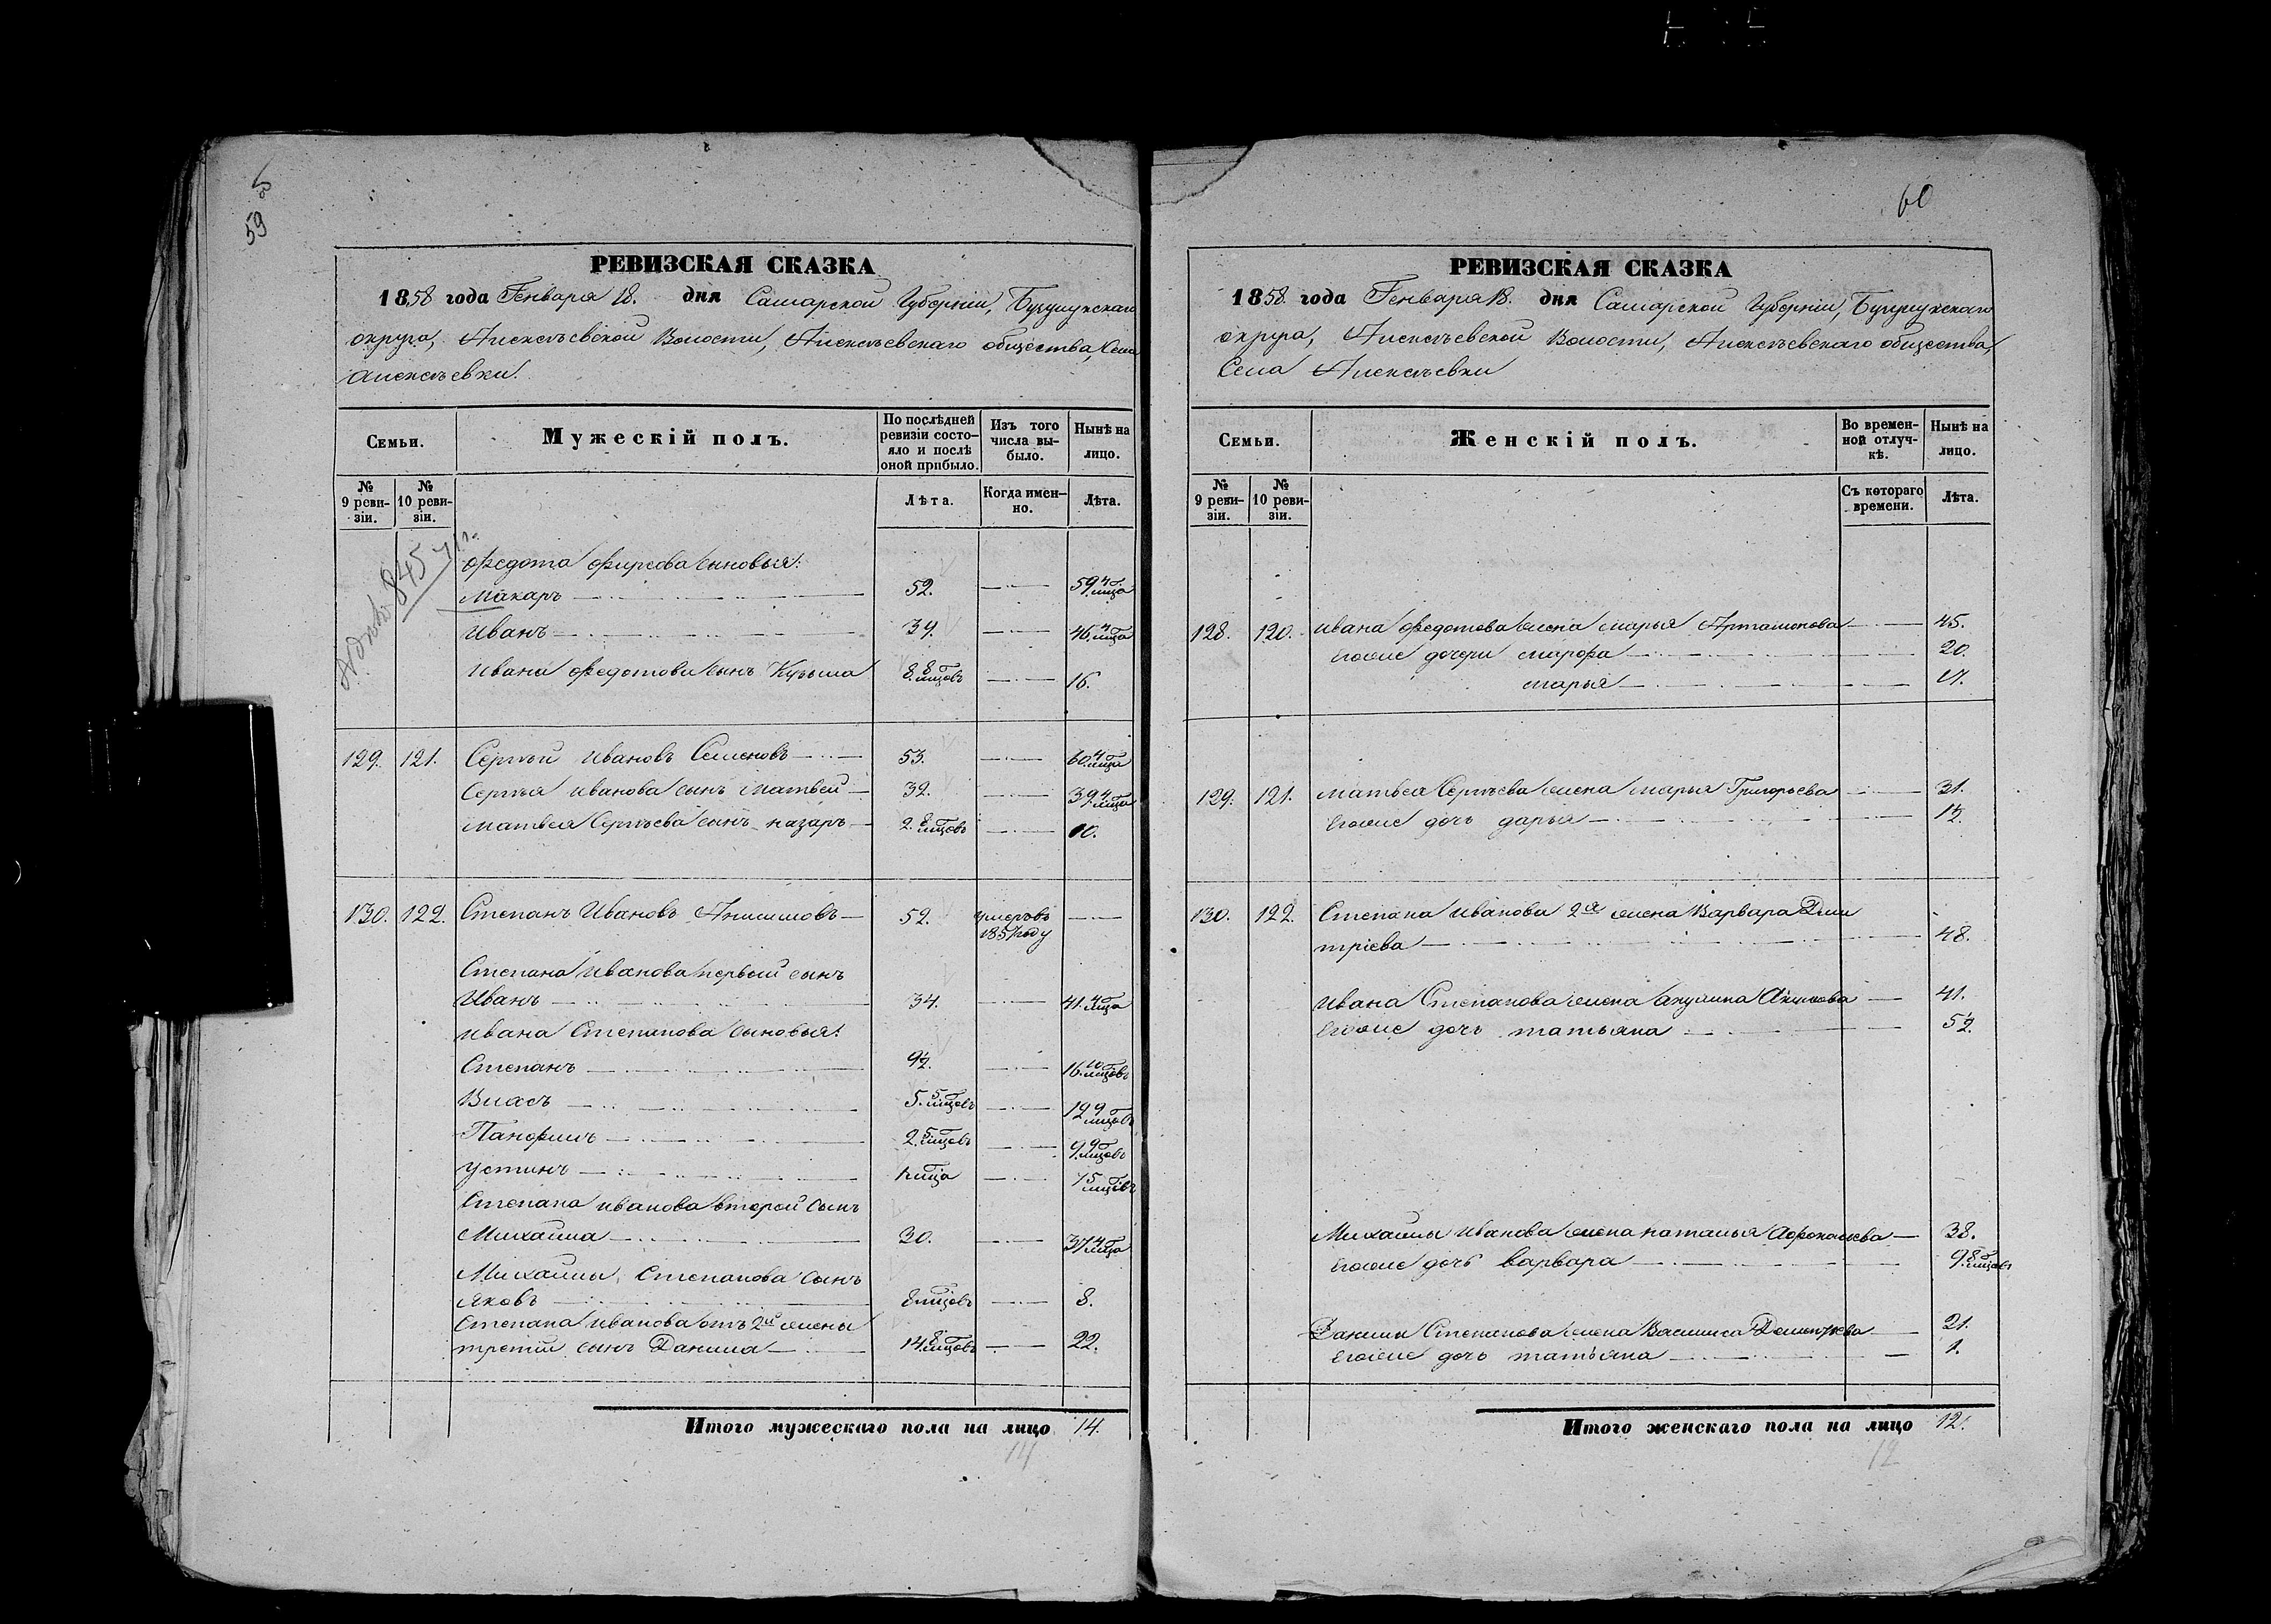 59
РЕВИЗСКАЯ СКАЗКА
1858 года Генваря 18. дня Самарской Губерніи, Бузулукскаго
округа, Алексѣевской Волости, Алексѣевскаго общества, Села
Алексѣевки.
Семьи.
Мужескій полъ.
По послѣдней ревизіи состояло и послѣ оной прибыло.
Изъ того числа выбыло.
Нынѣ на лицо.
№ 9 ревизіи.
№ 10 ревизіи.
Лѣта.
Когда именно.
Лѣта.
845
Федота Фирсова сыновья:
Макаръ 52. 59. 4 мца
Иванъ 39. 46. 4 мца
Ивана Федотова сынъ Кузьма 8. 8 мцовъ 16.
129. 121. Сергѣй Ивановъ Семеновъ 53. 60. 4 мца
Сергѣя Иванова сынъ Матвей 32. 39. 4 мца
Матвея Сергѣева сынъ Назаръ 2. 8 мцовъ 10.
130. 122. Степанъ Ивановъ Анисимовъ 52. умеръ въ
1857 году
Степана Иванова первый сынъ
Иванъ 34. 41. 4 мца
Ивана Степанова сыновья:
Степанъ 9½. 16. 10 мцовъ
Власъ 5. 5 мцовъ 12 9 мцовъ
Панфилъ 2. 5 мцовъ 9. 9 мцовъ
Устинъ 1 мца 7 5 мцовъ
Степана Иванова второй сынъ
Михайла 30. 37 4 мца
Михайлы Степанова сынъ
Яковъ 8 мцовъ 8.
Степана Иванова отъ 2й жены
третій сынъ Данила 14. 8 мцовъ 22.
Итого мужескаго пола на лицо 14.
14
60
РЕВИЗСКАЯ СКАЗКА
1858 года Генваря 18. дня Самарской Губерніи, Бузулукскаго
округа, Алексѣевской Волости, Алексѣевскаго общества,
Села Алексѣевки
Семьи.
Женскій полъ.
Во временной отлучкѣ.
Нынѣ на лицо.
№ 9 ревизіи.
№ 10 ревизіи.
Съ котораго времени.
Лѣта.
128. 120. Ивана Федотова жена Марья Артамонова 45.
Егоже дочери Марфа 20.
Марья
129. 121. Матвея Сергѣева жена Марья Григорьева 31.
Егоже дочь Дарья 1½.
130. 122. Степана Иванова 2я жена Варвара Дми
тріева 48.
Ивана Степанова жена Акулина 41.
Егоже дочь Татьяна 5½.
Михайлы Иванова жена Наталья Афонасьева 38.
Егоже дочь Варвара 9. 8 мцовъ
Данилы Степанова жена Василиса Дементьева 21.
Егоже дочь Татьяна 1.
Итого женскаго пола на лицо 12.
12